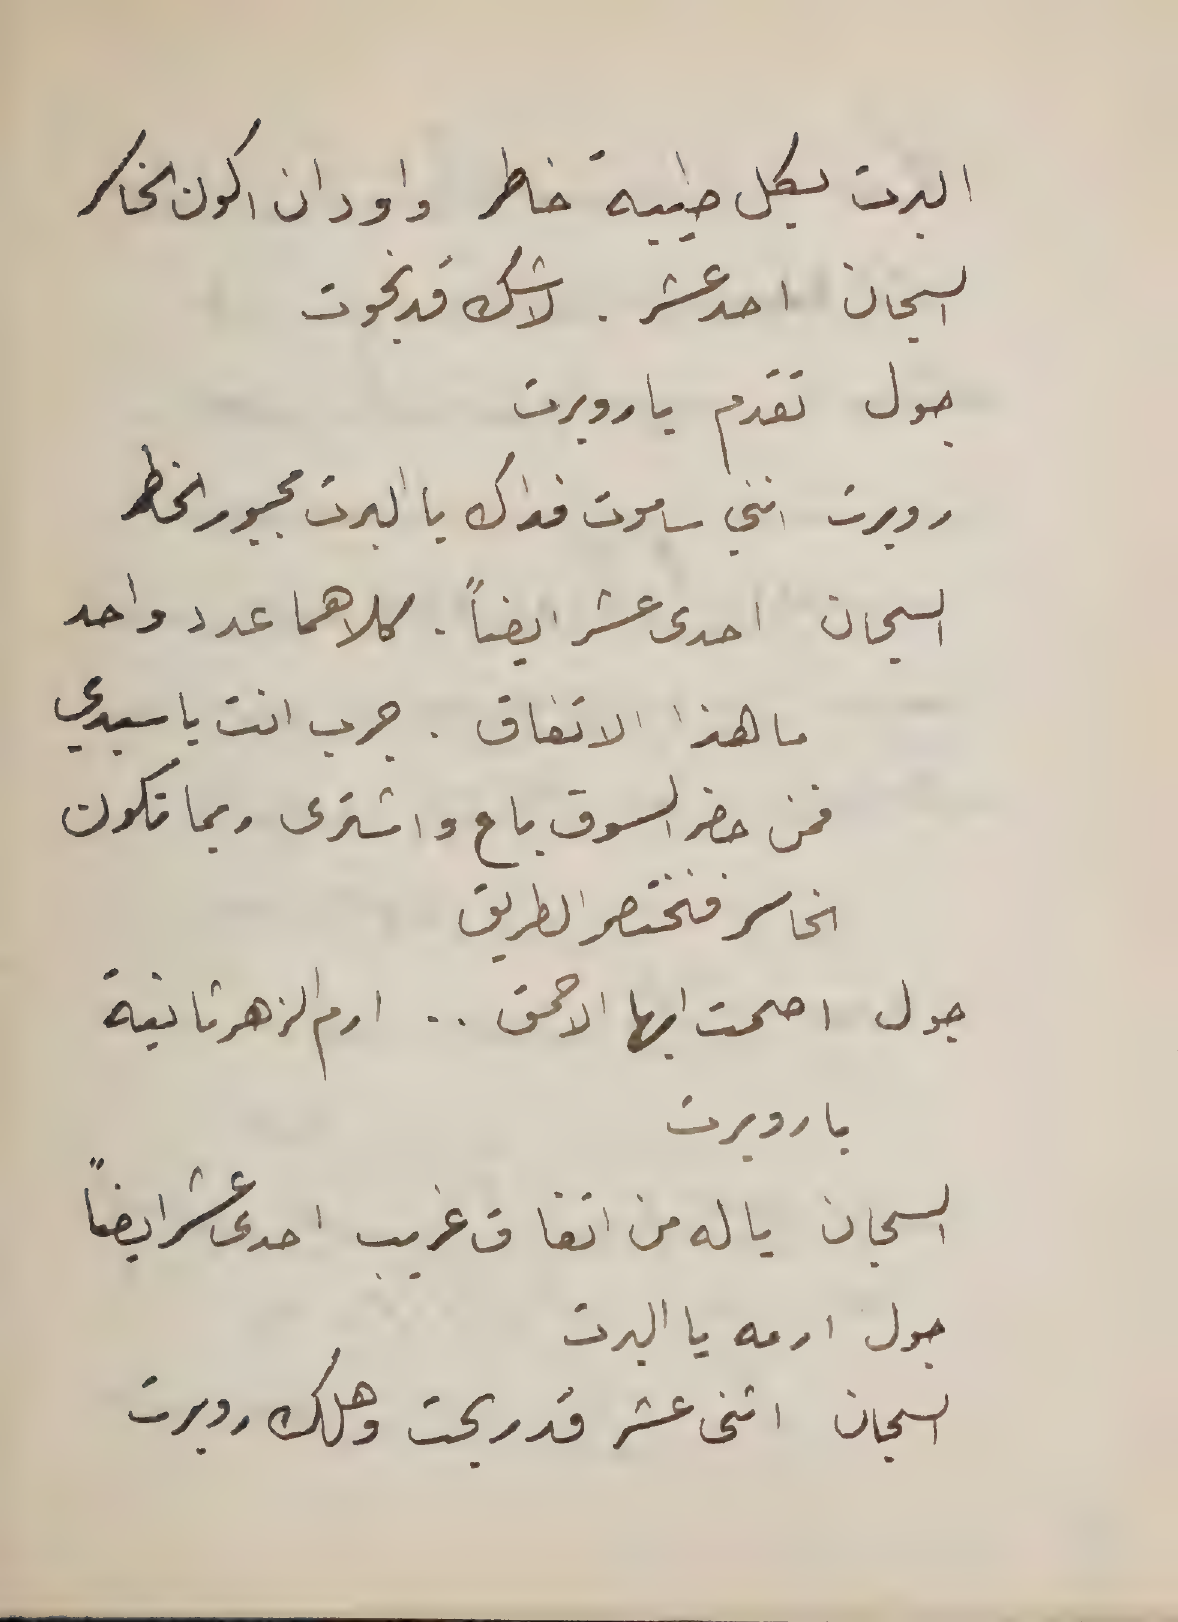 البرت بكل طيبة خاطر واود ان اكون الخاسر
السجان احد عشر . لا شك قد نجوت
جول تقدم يا روبرت
روبرت انني ساموت فداك يا البرت مجبور الخاطر
السجان احدى عشر ايضاً . كلاهما عدد واحد
ما هذا الاتفاق . جرب انت يا سيدي
فمن حضر السوق باع واشترى ربما تكون
الخاسر فنختصر الطريق
جول اصمت ايها الاحمق .. ارم الزهر ثانية
يا روبرت
السجان يا له من اتفاق غريب احدى عشر ايضاً
جول ارمه يا البرت
السجان اثنى عشر قد ربحت وهلك روبرت